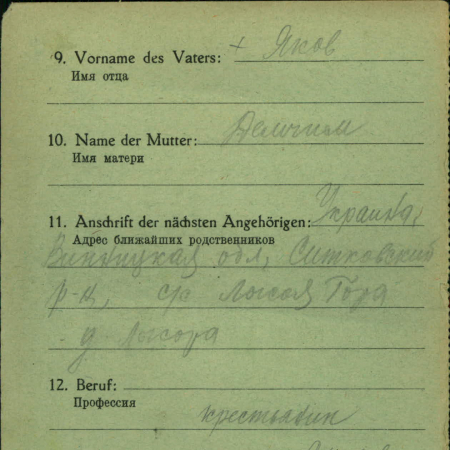 9. Vorname des Vaters: + Яков
Имя отца
10. Name der Mutter:
Имя матери
11. Anschrift der nächsten Angehörigen: Украина,
Адрес ближайших родственников
Винницкая обл, Ситковский
р-н, с/с Лысая Гора
д Лысора
12. Beruf:
Профессия
крестьянин